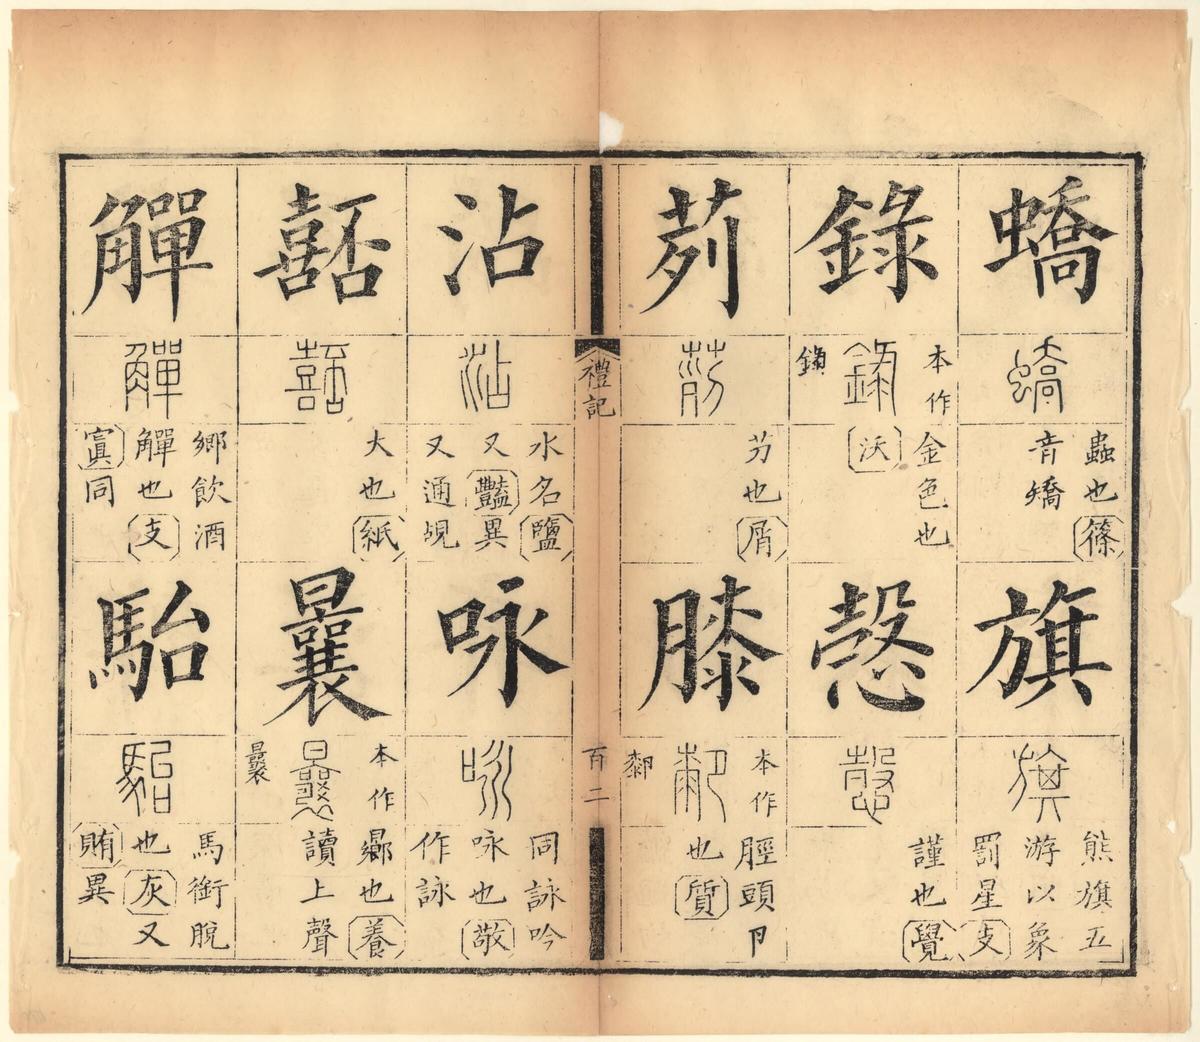 蟜
蟜
蟲也篠
音矯
旗
旗
熊旗五
游以象
罰星支
錄
本作
錄
金色也
沃
慤
慤
謹也覺
茢
茢
芀也屑
膝
本作
厀
脛頭卩
也質
禮記
百二
沾
沾
水名鹽
又豔異
又通覘
咏
咏
同詠吟
咏也敬
作詠
嚭
嚭
大也紙
曩
本作
曩
曩
曏也養
讀上聲
觶
觶
鄉飲酒
觶也支
寘同
駘
駘
馬銜脫
也灰又
賄異